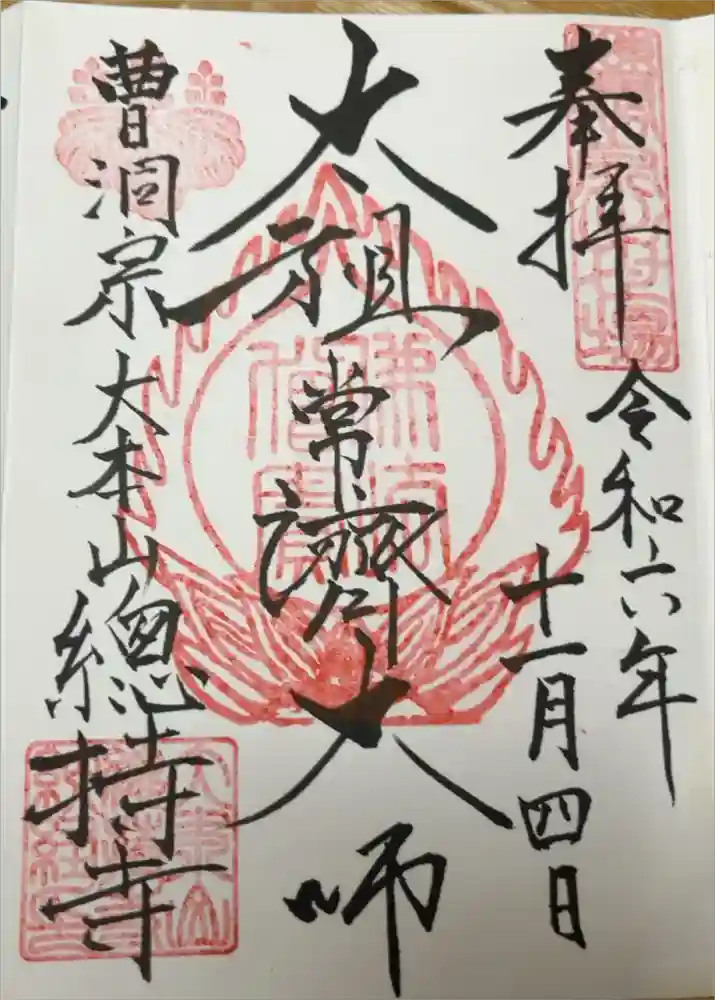 奉拝
令和六年
十一月四日
太祖常濟大師
曹洞宗大本山總持寺
佛法僧寶